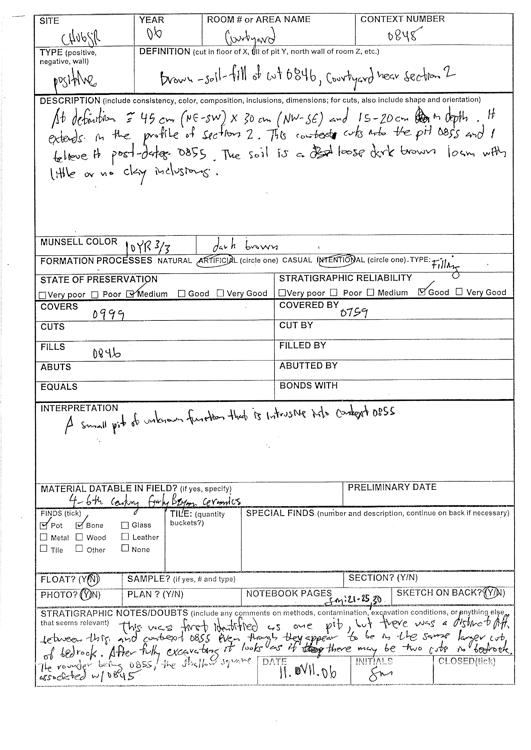 SITE YEAR ROOM # or AREA NAME CONTEXT NUMBER
06 Courtyard 0845
TYPE (positive, negative, wall) DEFINITION (cut in floor of X, fill of pit Y, north wall of room Z, etc.)
positive Brown-soil-fill of cut 0846, Courtyard near section 2
DESCRIPTION (include consistency, color, composition, inclusions, dimensions; for cuts, also include shape and orientation)
At definition ≈ 45 cm (NE-SW) X 30 cm (NW-SE) and 15-20 cm in depth. It
extends in the profile of section 2. This context cuts into the pit 0855 and I
believe it post-dates 0855. The soil is a loose dark brown loam with
little or no clay inclusions.
MUNSELL COLOR 10YR 3/3 dark brown
FORMATION PROCESSES NATURAL ARTIFICIAL (circle one) CASUAL INTENTIONAL (circle one). TYPE: Filling
STATE OF PRESERVATION STRATIGRAPHIC RELIABILITY
Very poor Poor Medium Good Very Good Very poor Poor Medium Good Very Good
COVERS 0999 COVERED BY 0759
CUTS CUT BY
FILLS 0846 FILLED BY
ABUTS ABUTTED BY
EQUALS BONDS WITH
INTERPRETATION
A small pit of unknown function that is intrusive into context 0855
MATERIAL DATABLE IN FIELD? (if yes, specify) PRELIMINARY DATE
4-6th century Early Byzan. ceramics
FINDS (tick) TILE: (quantity buckets?) SPECIAL FINDS (number and description, continue on back if necessary)
Pot Bone Glass
Metal Wood Leather
Tile Other None
FLOAT? (Y/N) SAMPLE? (if yes, # and type) SECTION? (Y/N)
PHOTO? (Y/N) PLAN? (Y/N) NOTEBOOK PAGES 21-25, 30 SKETCH ON BACK? (Y/N)
STRATIGRAPHIC NOTES/DOUBTS (include any comments on methods, contamination, excavation conditions, or anything else
that seems relevant) This was first identified as one pit, but there was a distinct diff.
between this and context 0855 even though they appear to be in the same larger cut
of bedrock. After fully excavating it looks as if there may be two cuts in bedrock.
The rounder being 0855, the shallow square
associated w/ 0845 DATE 11.VII.06 INITIALS CLOSED(tick)